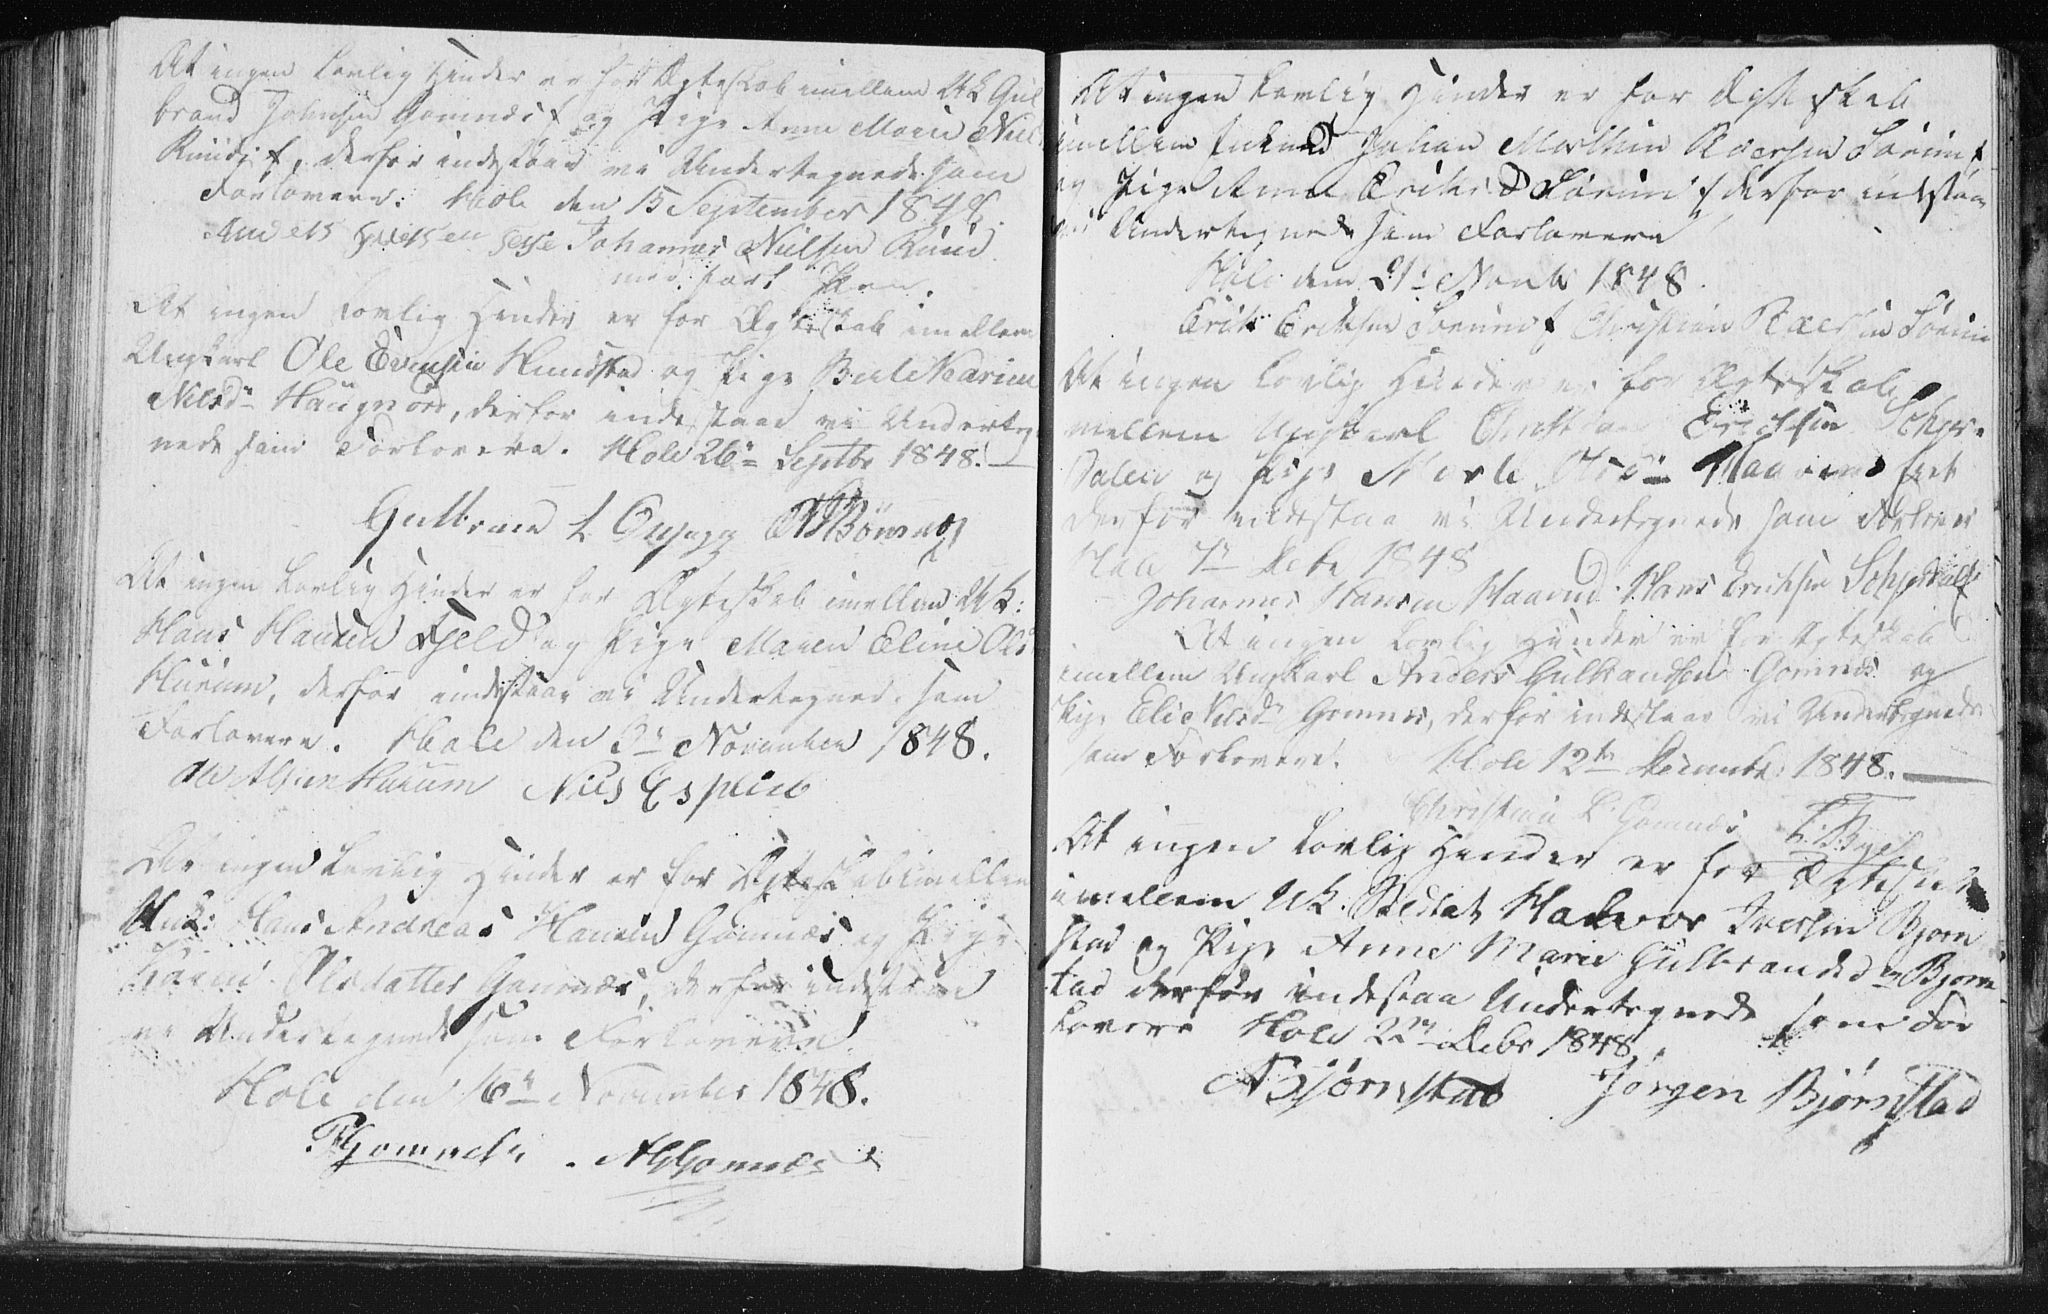 At ingen Lovlig Hinder er for Ægteskab imellem UK Gul
brand Johnsen Gomnæs og Pige Anne Marie Niels
Ruud, derfor indestaar vi Undertegnede som
Forlovere. Hole den 15 September 1848.
Johannes Nielsen Ruud
med ført Pen.
At ingen Lovlig Hinder er for Ægteskab imellem
Ungkarl Ole Evensen Hundstad og Pige Berte Karine
Nilsdr Haugnord, derfor indestaar vi Underteg
nede som Forlovere. Hole 26n Septbr 1848.
Gulbrand
At ingen Lovlig Hinder er for Ægteskab imellem UK:
Hans Hansen Fjeld og Pige Maren Eline Olsd
Hurum, derfor indestaar vi Undertegnede som
Forlovere. Hole den 3n November 1848.
Ole Hurum Nils Espelid
At ingen Lovlig Hinder er for Ægteskab imellem
Unk: Hans Andreas Hansen Gomnæs og Pige
Karen Olsdatter Gomnæs, derfor indestaar
vi Undertegnede som Forlovere
Hole den 16n November 1848.
Gomnæs. AGomnæs
At ingen Lovlig Hinder er for Ægteskab
imellem Johan Mathias Sørum
og Pige Anne Eriksd Sørum derfor indestaar
vi Undertegnede som Forlovere
Hole den 21 Novbr 1848.
Erik Eriksen Sørum Christian Sørum
At ingen Lovlig Hinder er for Ægteskab
mellem Ungkarl Christian Erichsen Schjer
dalen og Pige Marte Olsdr
derfor indestaa vi Undertegnede som Forlover
Hole 7n Debr 1848
Johannes Hansen Haarud Hans Erichsen
At ingen Lovlig Hinder er for Ægteskab
imellem Ungkarl Anders Gulbrandsen Gomnæs og
Pige Elie Nilsdr Gomnæs, derfor indestaar vi Undertegnede
som Forlovere. Hole 12te December 1848.
Christian Gomnæs
At ingen Lovlig Hinder er for Ægteskab
imellem UK. Soldat Halvor Iversen Bjørn
stad og Pige Anne Marie Gulbrandsdr Bjørn
stad derfor indestaa Undertegnede som For
lovere Hole 22n Debr 1848.
ABjørnstad Jørgen Bjørnstad